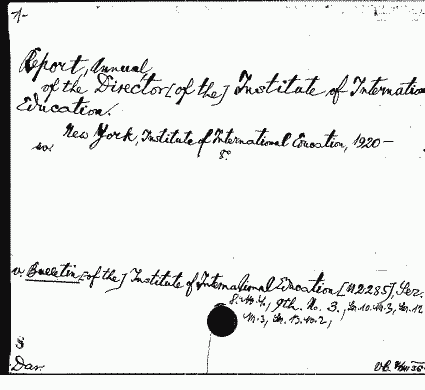 Report, Annual,
of the Director [of the] Institute of Internation
Education.
New York, Institute of International Education, 1920 —
8°.
Bulletin [of the] Institute of International Education [42285], Ser.
9th. No. 3, Ser. 10. No. 3, Ser. 12
No. 3, Ser. 13. No. 2,
8
Dar.